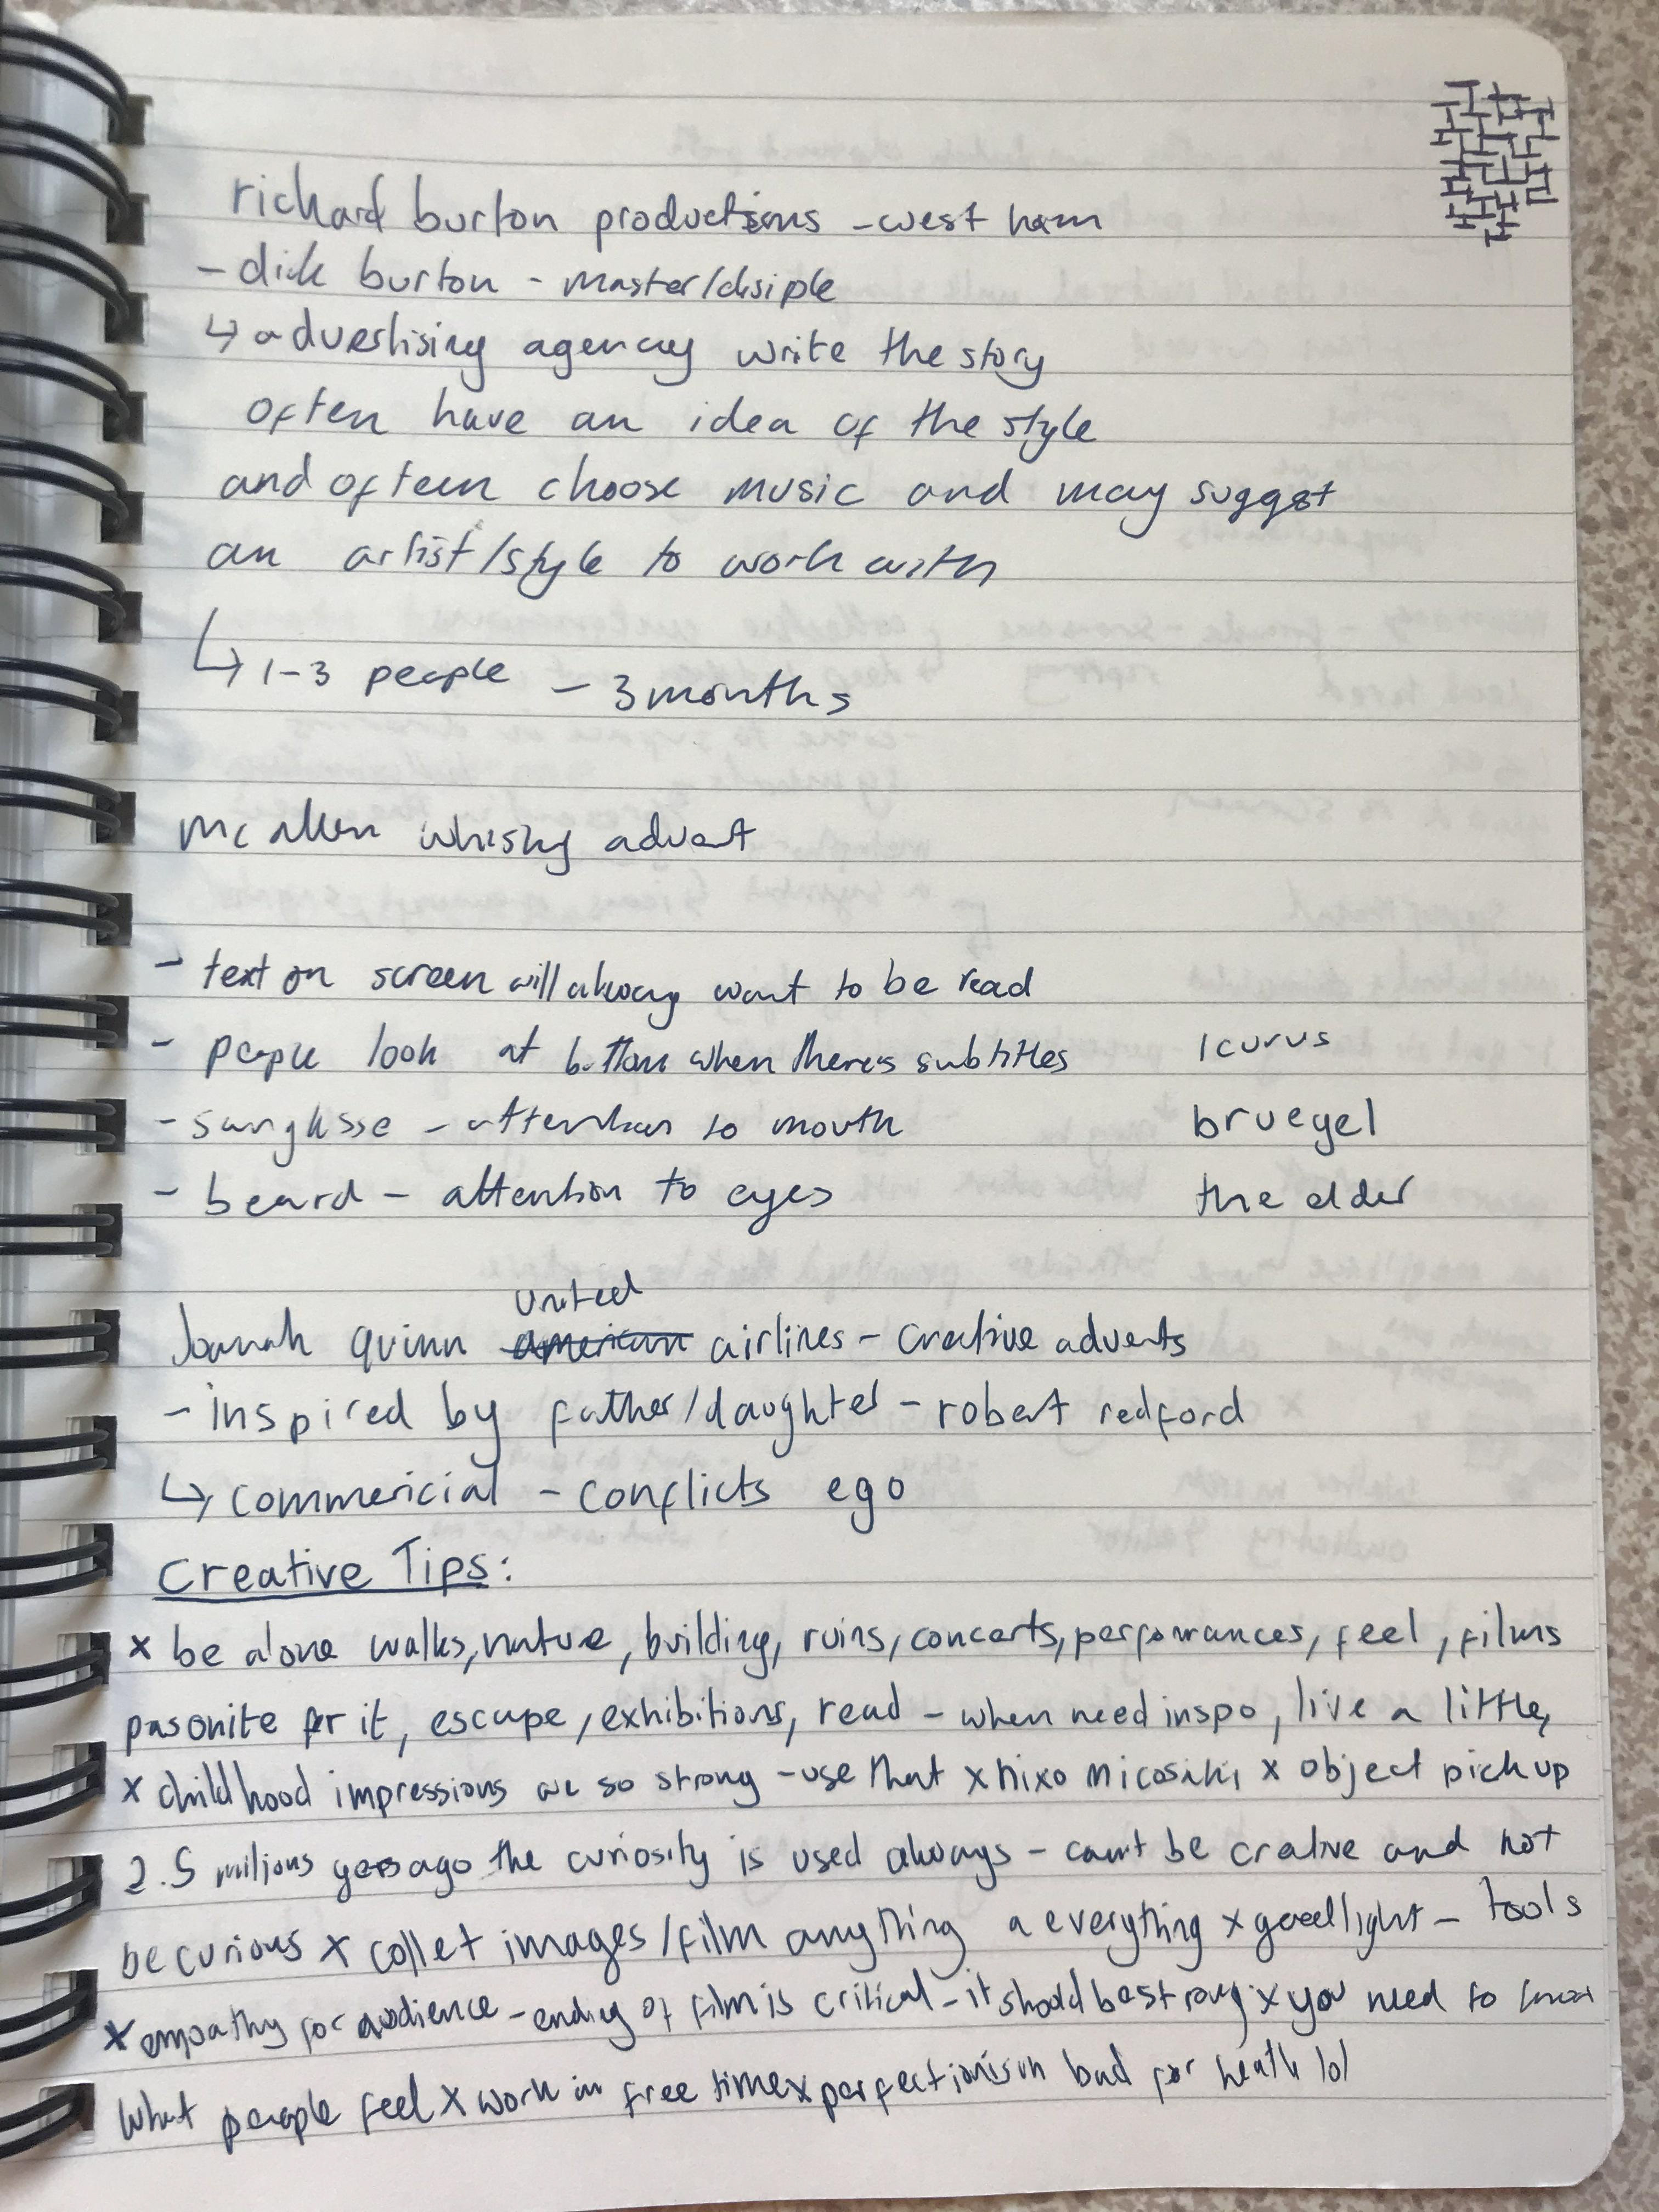 richard burton productions - west ham
- dick burton - master/disiple
↳ advertising agency write the story
often have an idea of the style
and ofteen choose music and may suggest
an artist/style to work with
↳ 1-3 people - 3 months
mc allen whisky advert
- text on screen will always want to be read
- people look at bottom when theres subtitles
Icurus
- sunglasse - attention to mouth
bruegel
- beard - attention to eyes
the elder
united
Joanah quinn american airlines - creative adverts
- inspired by father/daughter - robert redford
↳ commericial - conflicts ego
Creative Tips:
x be alone walks, nature, building, ruins, concerts, performances, feel, films
pasonite for it, escape, exhibitions, read - when need inspo, live a little,
x childhood impressions are so strong - use that x hixo x object pick up
2.5 milions years ago the curiosity is used always - can't be crative and not
be curious x collet images/film anything a everything x good light - tools
x empathy for audience - ending of film is critical - it should be strong x you need to know
what people feel x work in free time x perfectionism bad for heath lol